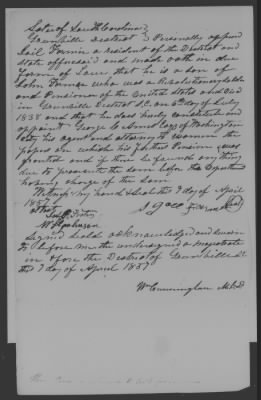 State of South Carolina
Greenville District } Personally appeared
Gail Turner a resident of the District and
state aforesaid and made oath in due
form of Law that he is a son of
John Turner who was a Revolutionary Soldier
and Pensioner of the United States and died
in Greenville District S.C. on 6th day of July
1838 and that he does hereby constitute and
appoint George
City his agent and attorney to examine the
papers on which his Father Pension was
granted and if there be found anything
due to prosecute the same before the Department
having charge of the same
Witness my hand & Seal this 7 day of April
1857
attest
Signed Sealed acknowledged and sworn
to before me the undersigned a magistrate
in & for the District of Greenville SC
this 7 day of April 1857
Wm Cunningham